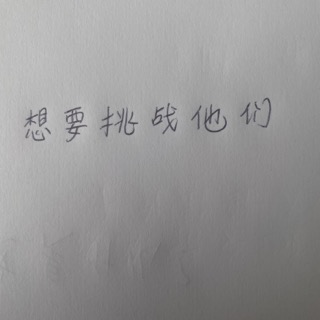 想要挑战他们